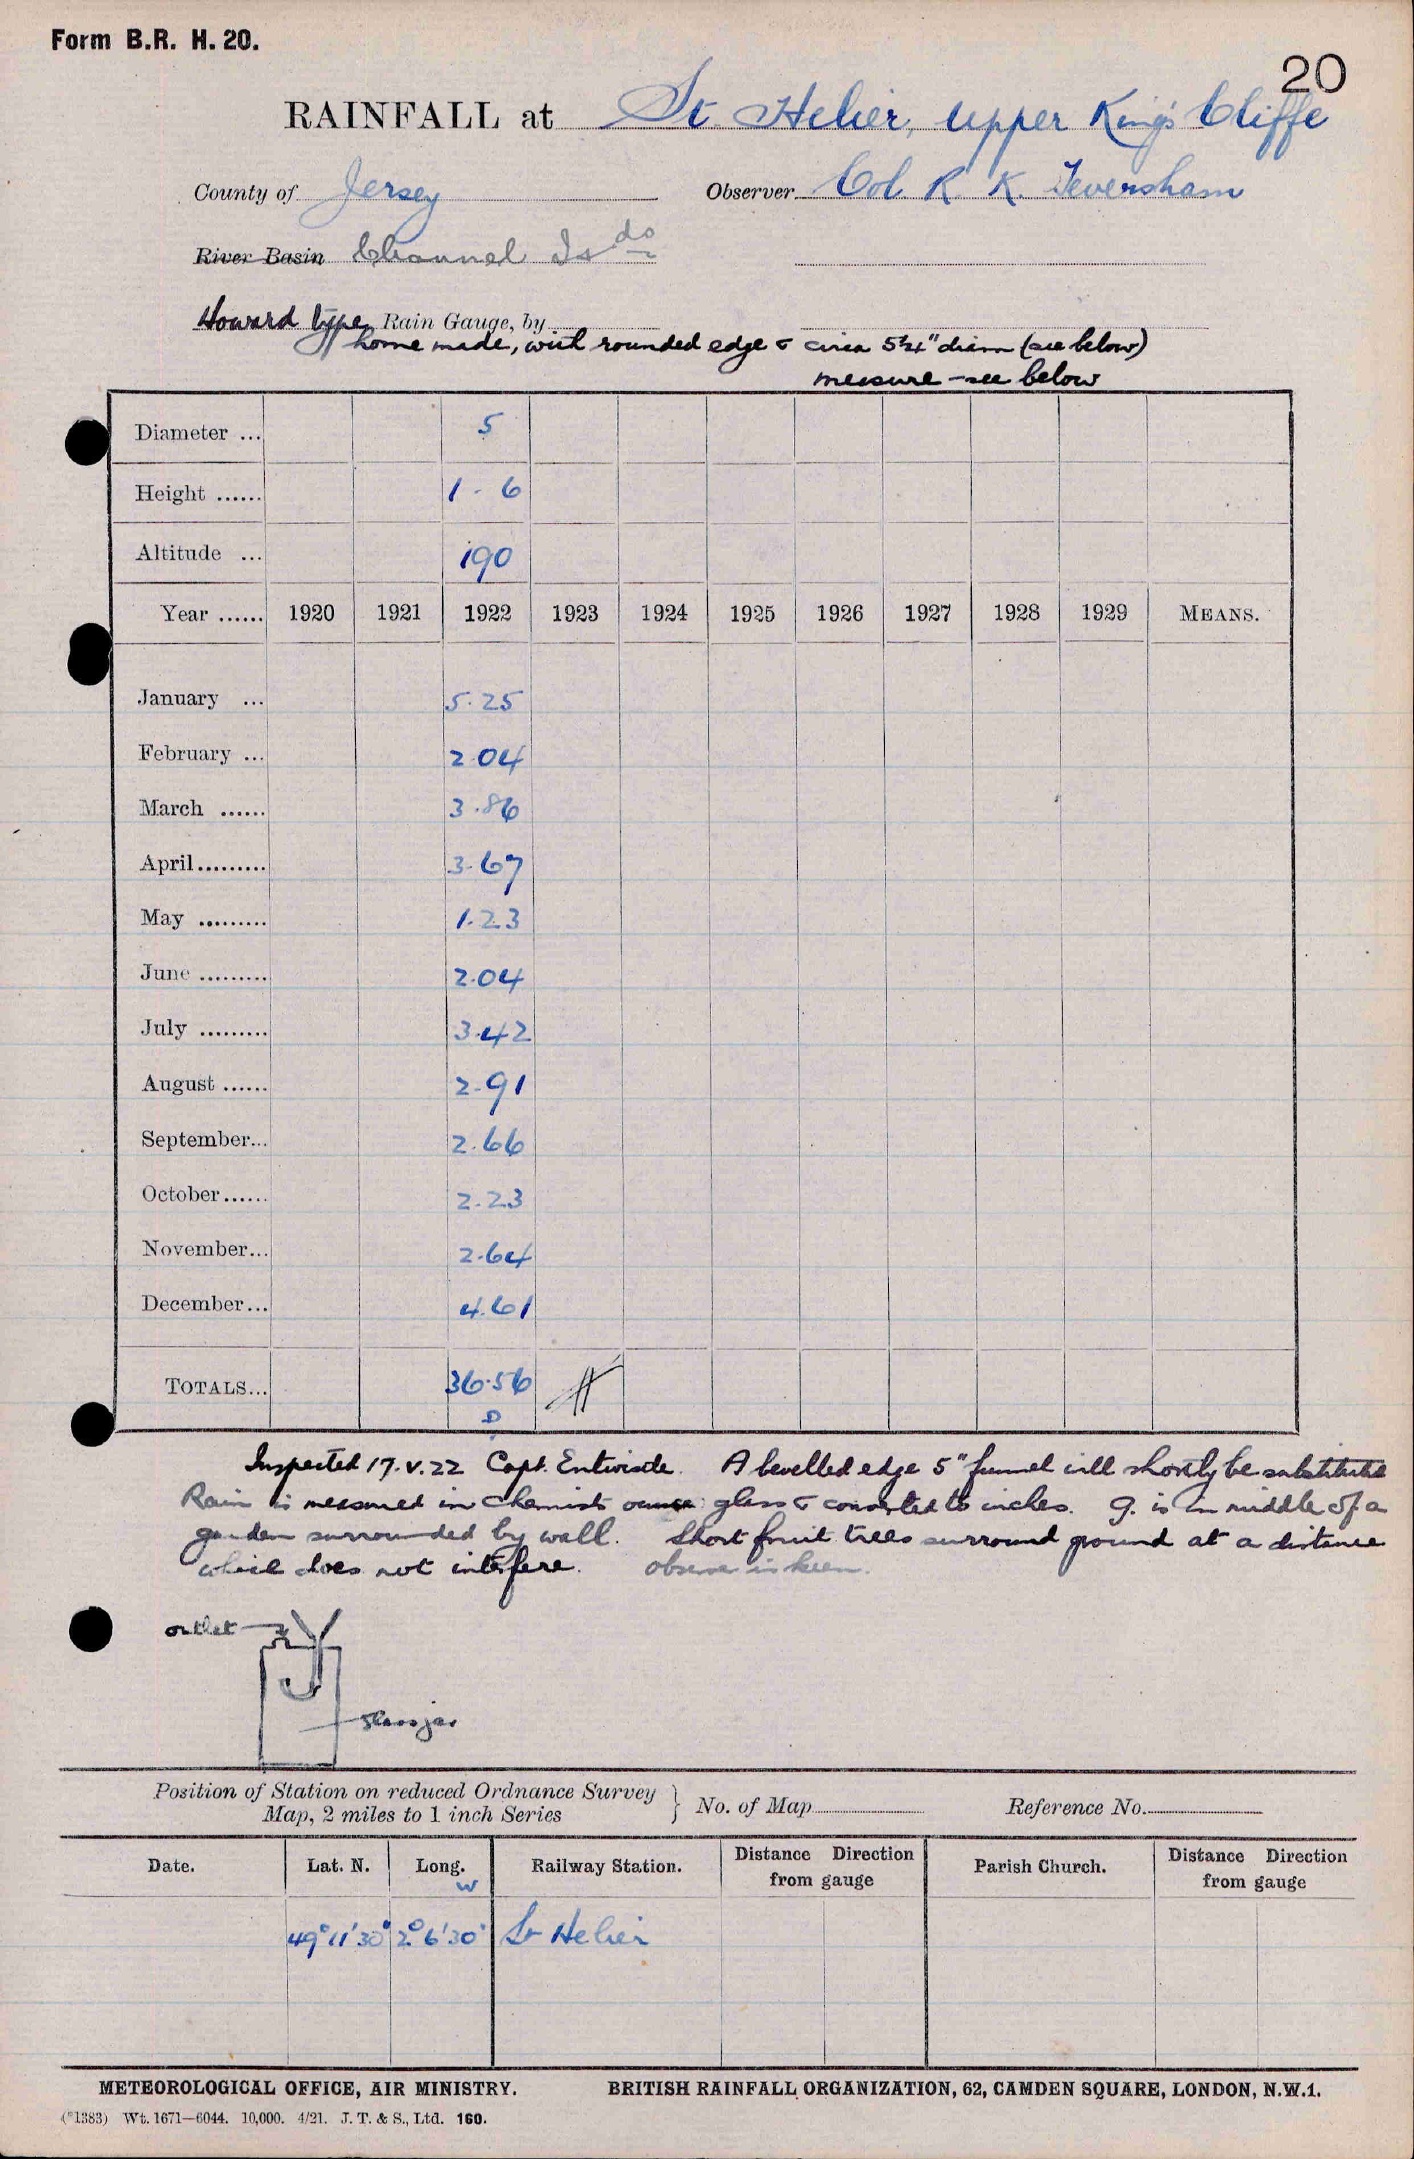 Form B.R. H. 20.
20
RAINFALL at St Helier, Upper King's Cliffe
County of Jersey Observer Col. R. K. Teversham
River Basin Channel Is ds
Howard type Rain Gauge, by
home made, with rounded edge & circa 5¼" diam (see below)
measure - see below
Diameter ... 5
Height ...... 1 - 6
Altitude ... 190
Year ...... 1920 1921 1922 1923 1924 1925 1926 1927 1928 1929 MEANS.
January ... 5.25
February ... 2.04
March ...... 3.86
April ......... 3.67
May ......... 1.23
June ......... 2.04
July ......... 3.42
August ...... 2.91
September... 2.66
October ...... 2.23
November... 2.64
December... 4.61
TOTALS... 36.56
D
Inspected 17.V.22 Capt. Entwistle. A bevelled edge 5" funnel will shortly be substituted
Rain is measured in chemists ounce glass & converted to inches. G. is in middle of a
garden surrounded by wall. Short fruit trees surround ground at a distance
which does not interfere. Observer is keen.
outlet
glass jar
Position of Station on reduced Ordnance Survey
Map, 2 miles to 1 inch Series } No. of Map Reference No.
Date. Lat. N. Long. W Railway Station. Distance Direction from gauge Parish Church. Distance Direction from gauge
49° 11' 30" 2° 6' 30" St Helier
METEOROLOGICAL OFFICE, AIR MINISTRY. BRITISH RAINFALL ORGANIZATION, 62, CAMDEN SQUARE, LONDON, N.W.1.
(*1383) Wt. 1671—6044. 10,000. 4/21. J. T. & S., Ltd. 160.